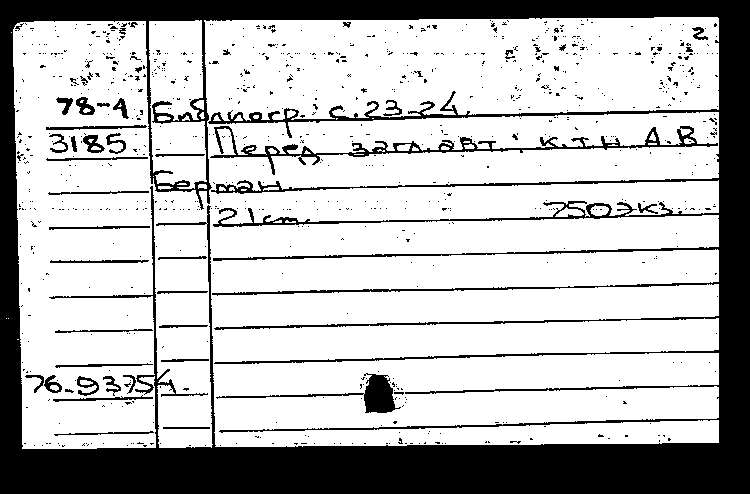 2
78-4 Библиогр.: с.23-24.
3185 Перед загл. авт.: к.т.н А.В
Берман
21 cm. 750 экз.
76-93754.